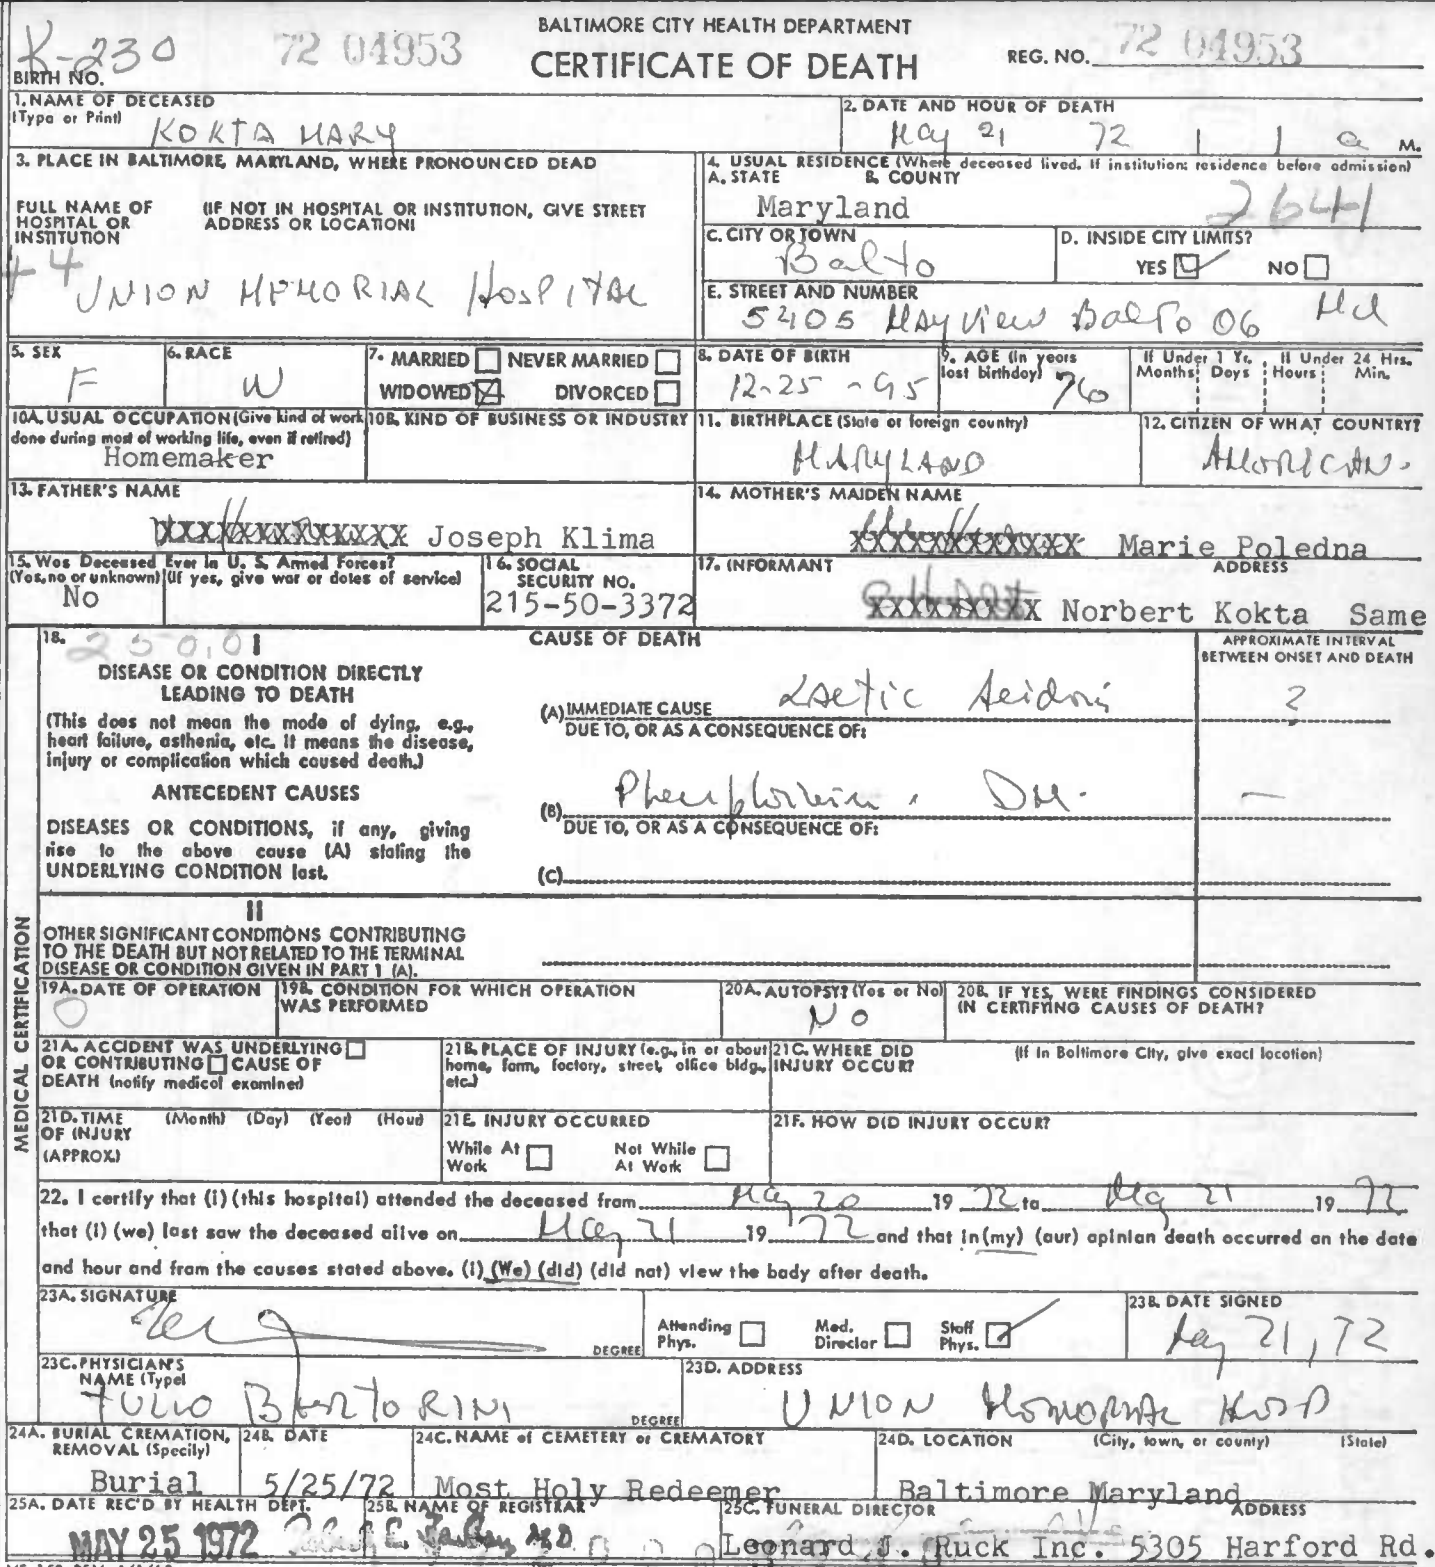 BALTIMORE CITY HEALTH DEPARTMENT
K-230 72 04953 CERTIFICATE OF DEATH REG. NO. 72 04953
BIRTH NO.
1. NAME OF DECEASED
(Type or Print) KOKTA MARY
2. DATE AND HOUR OF DEATH
May 21 72 1 a M.
3. PLACE IN BALTIMORE, MARYLAND, WHERE PRONOUNCED DEAD
FULL NAME OF HOSPITAL OR INSTITUTION (IF NOT IN HOSPITAL OR INSTITUTION, GIVE STREET ADDRESS OR LOCATION)
44
UNION MEMORIAL HOSPITAL
4. USUAL RESIDENCE (Where deceased lived. If institution: residence before admission)
A. STATE B. COUNTY
Maryland 2641
C. CITY OR TOWN
Balto
D. INSIDE CITY LIMITS?
YES NO
E. STREET AND NUMBER
5405 Mayview Balto 06 Md
5. SEX
F
6. RACE
W
7. MARRIED NEVER MARRIED
WIDOWED DIVORCED
8. DATE OF BIRTH
12-25-95
9. AGE (In years last birthday) 76
If Under 1 Yr. Months Days
If Under 24 Hrs. Hours Min.
10A. USUAL OCCUPATION (Give kind of work done during most of working life, even if retired)
Homemaker
10B. KIND OF BUSINESS OR INDUSTRY
11. BIRTHPLACE (State or foreign country)
MARYLAND
12. CITIZEN OF WHAT COUNTRY?
AMERICAN.
13. FATHER'S NAME
Joseph Klima
14. MOTHER'S MAIDEN NAME
Marie Poledna
15. Was Deceased Ever In U. S. Armed Forces?
(Yes, no or unknown) (If yes, give war or dates of service)
No
16. SOCIAL SECURITY NO.
215-50-3372
17. INFORMANT ADDRESS
Norbert Kokta Same
MEDICAL CERTIFICATION
18. 250.0 I
CAUSE OF DEATH
APPROXIMATE INTERVAL BETWEEN ONSET AND DEATH
DISEASE OR CONDITION DIRECTLY LEADING TO DEATH
(This does not mean the mode of dying, e.g., heart failure, asthenia, etc. It means the disease, injury or complication which caused death.)
(A) IMMEDIATE CAUSE Lactic Acidosis ?
DUE TO, OR AS A CONSEQUENCE OF:
ANTECEDENT CAUSES
DISEASES OR CONDITIONS, if any, giving rise to the above cause (A) stating the UNDERLYING CONDITION last.
(B) Phenphormin . DM. —
DUE TO, OR AS A CONSEQUENCE OF:
(C)
II
OTHER SIGNIFICANT CONDITIONS CONTRIBUTING TO THE DEATH BUT NOT RELATED TO THE TERMINAL DISEASE OR CONDITION GIVEN IN PART 1 (A).
19A. DATE OF OPERATION
0
19B. CONDITION FOR WHICH OPERATION WAS PERFORMED
20A. AUTOPSY? (Yes or No)
NO
20B. IF YES, WERE FINDINGS CONSIDERED IN CERTIFYING CAUSES OF DEATH?
21A. ACCIDENT WAS UNDERLYING OR CONTRIBUTING CAUSE OF DEATH (notify medical examiner)
21B. PLACE OF INJURY (e.g., in or about home, farm, factory, street, office bldg., etc.)
21C. WHERE DID INJURY OCCUR? (If in Baltimore City, give exact location)
21D. TIME OF INJURY (APPROX.) (Month) (Day) (Year) (Hour)
21E. INJURY OCCURRED
While At Work Not While At Work
21F. HOW DID INJURY OCCUR?
22. I certify that (I) (this hospital) attended the deceased from May 20 19 72 to May 21 19 72
that (I) (we) last saw the deceased alive on May 21 19 72 and that in (my) (our) opinion death occurred on the date
and hour and from the causes stated above. (I) (We) (did) (did not) view the body after death.
23A. SIGNATURE
DEGREE
Attending Phys. Med. Director Staff Phys.
23B. DATE SIGNED
May 21, 72
23C. PHYSICIAN'S NAME (Type)
TULIO BERTORINI
DEGREE
23D. ADDRESS
UNION MEMORIAL HOSP
24A. BURIAL CREMATION, REMOVAL (Specify)
Burial
24B. DATE
5/25/72
24C. NAME of CEMETERY or CREMATORY
Most Holy Redeemer
24D. LOCATION (City, town, or county) (State)
Baltimore Maryland
25A. DATE REC'D BY HEALTH DEPT.
MAY 25 1972
25B. NAME OF REGISTRAR
25C. FUNERAL DIRECTOR ADDRESS
Leonard J. Ruck Inc. 5305 Harford Rd.